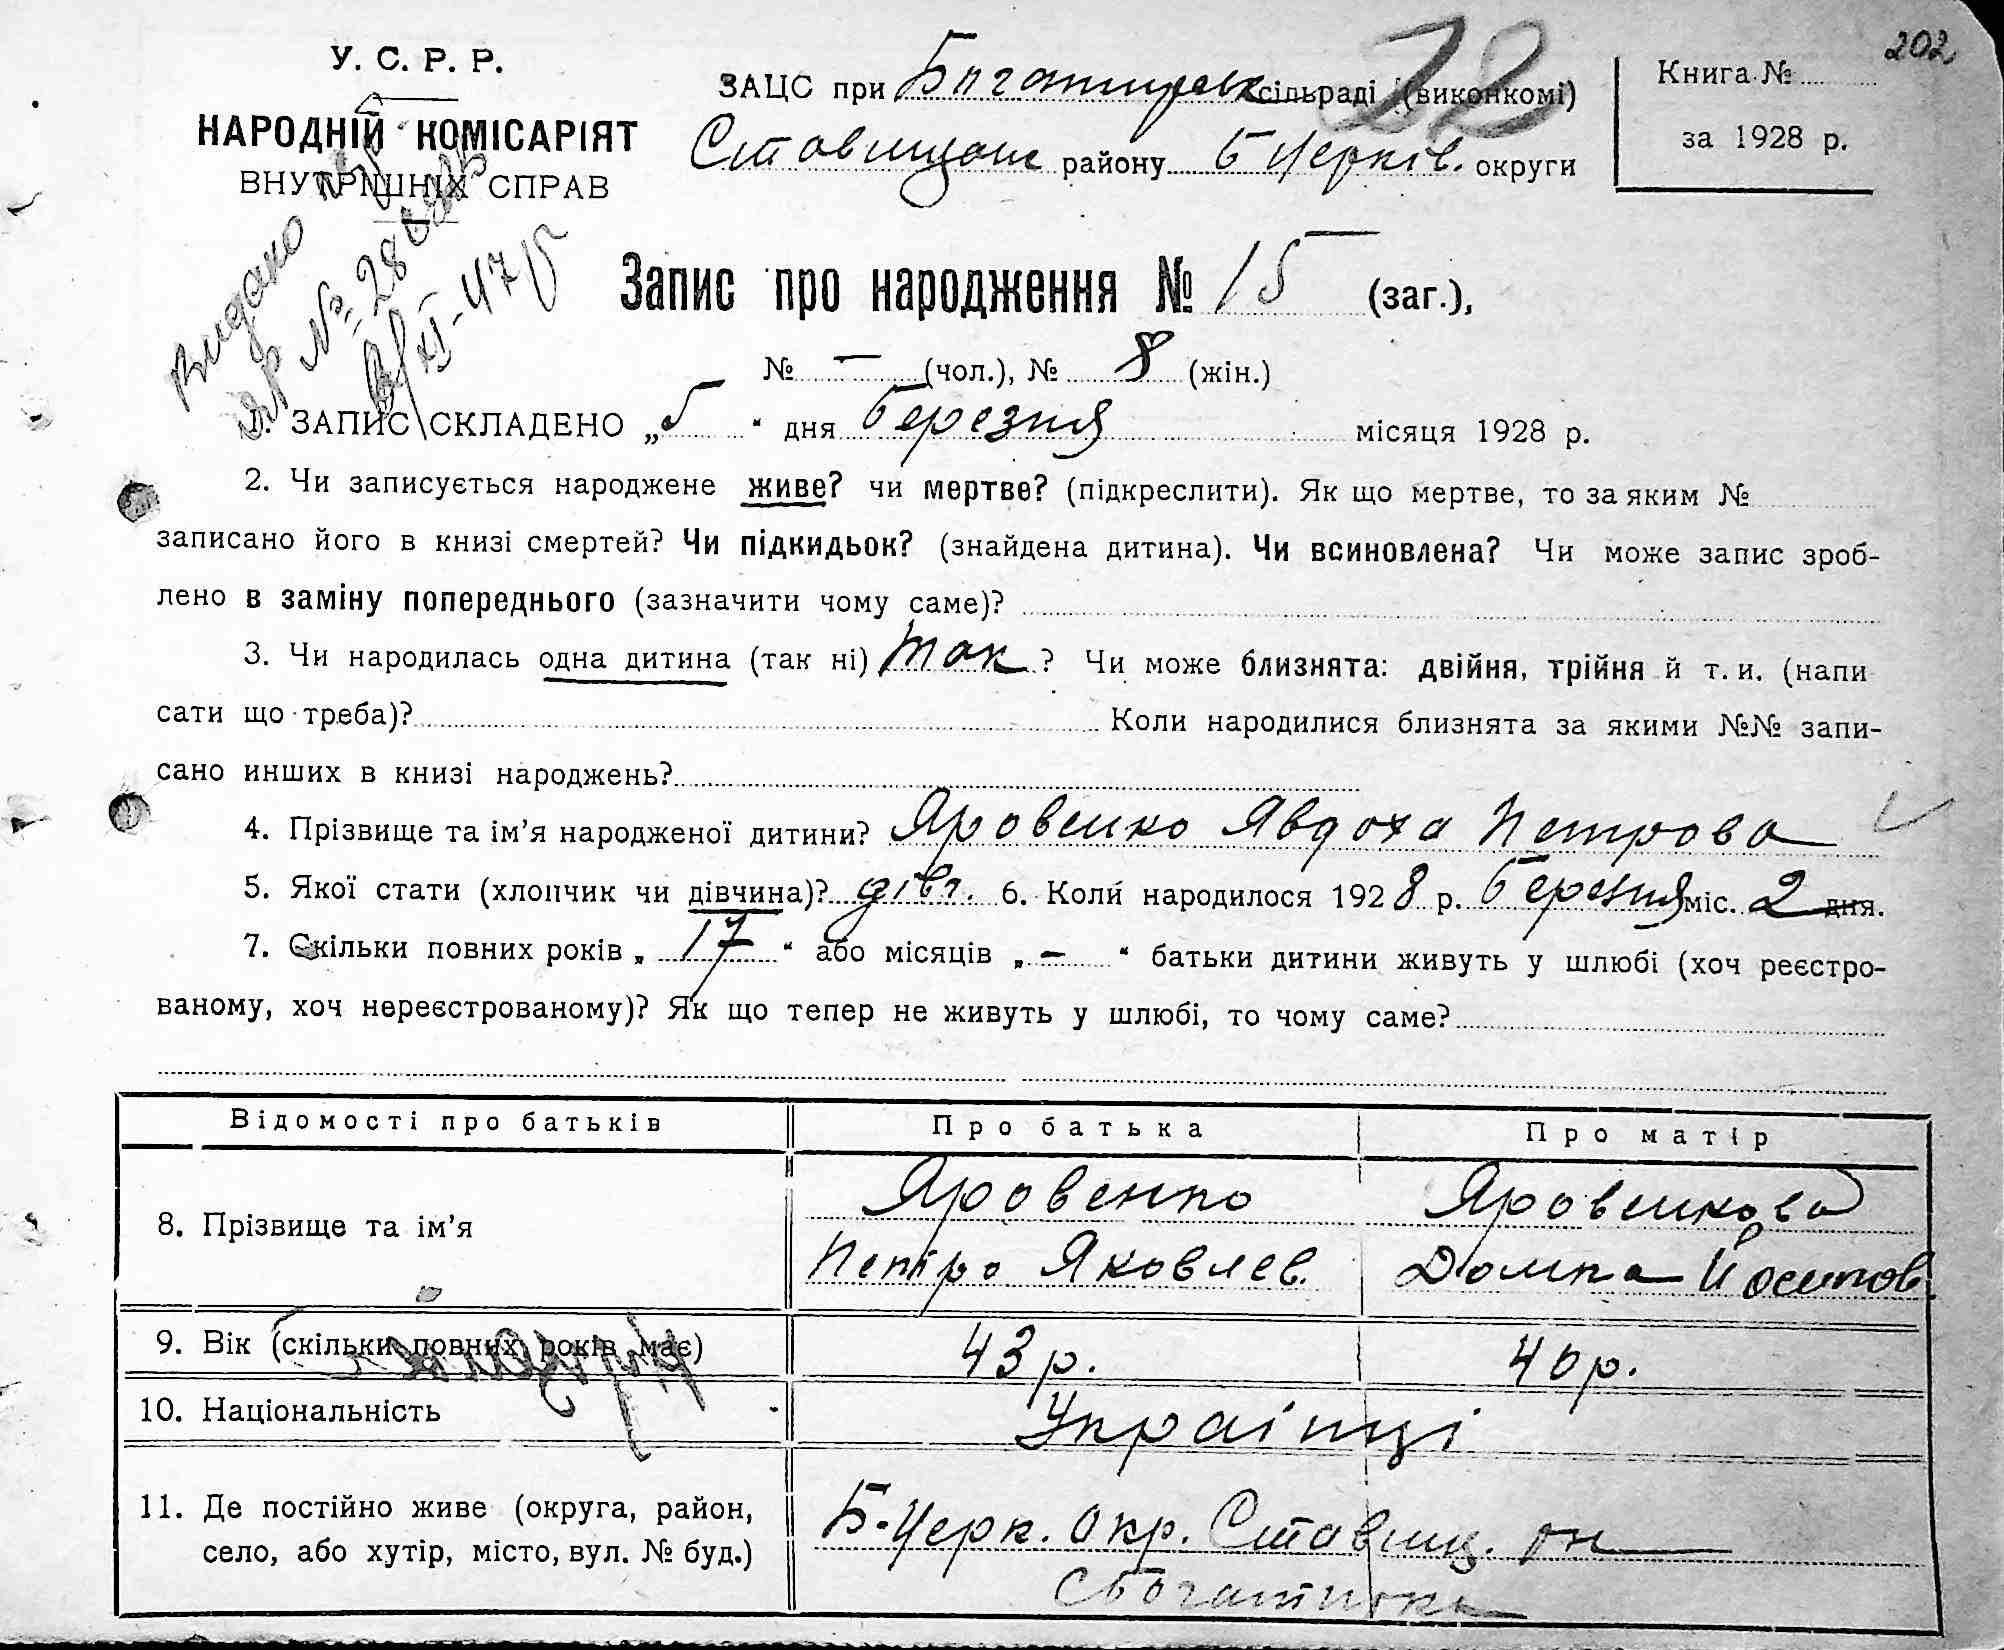 202
У. С. Р. Р.
НАРОДНІЙ КОМІСАРІЯТ
ВНУТРІШНІХ СПРАВ
ЗАЦС при Багатирськ сільраді (виконкомі)
Ставищан району Б Церків. округи
Книга №
за 1928 р.
28
Видано
ЯР № 28
Запис про народження № 15 (заг.),
№ — (чол.), № 8 (жін.)
1. ЗАПИС СКЛАДЕНО „5“ дня березня місяця 1928 р.
2. Чи записується народжене живе? чи мертве? (підкреслити). Як що мертве, то за яким №
записано його в книзі смертей? Чи підкидьок? (знайдена дитина). Чи всиновлена? Чи може запис зроб-
лено в заміну попереднього (зазначити чому саме)?
3. Чи народилась одна дитина (так ні) так ? Чи може близнята: двійня, трійня й т. и. (напи
сати що треба)? Коли народилися близнята за якими №№ запи-
сано инших в книзі народжень?
4. Прізвище та ім’я народженої дитини? Яровенко Явдоха Петрова
5. Якої стати (хлопчик чи дівчина)? дівч. 6. Коли народилося 1928 р. березня міс. 2 дня.
7. Скільки повних років „ 17 “ або місяців „ — “ батьки дитини живуть у шлюбі (хоч реєстро-
ваному, хоч нереєстрованому)? Як що тепер не живуть у шлюбі, то чому саме?
Відомості про батьків Про батька Про матір
8. Прізвище та ім’я
Яровенко
Петро Яковлев.
Яровенкова
Домна Йосипов.
9. Вік (скільки повних років має) 43 р. 40 р.
10. Національність Українці
11. Де постійно живе (округа, район,
село, або хутір, місто, вул. № буд.)
Б.-Церк. Окр. Ставищ. рн
с Богатирка